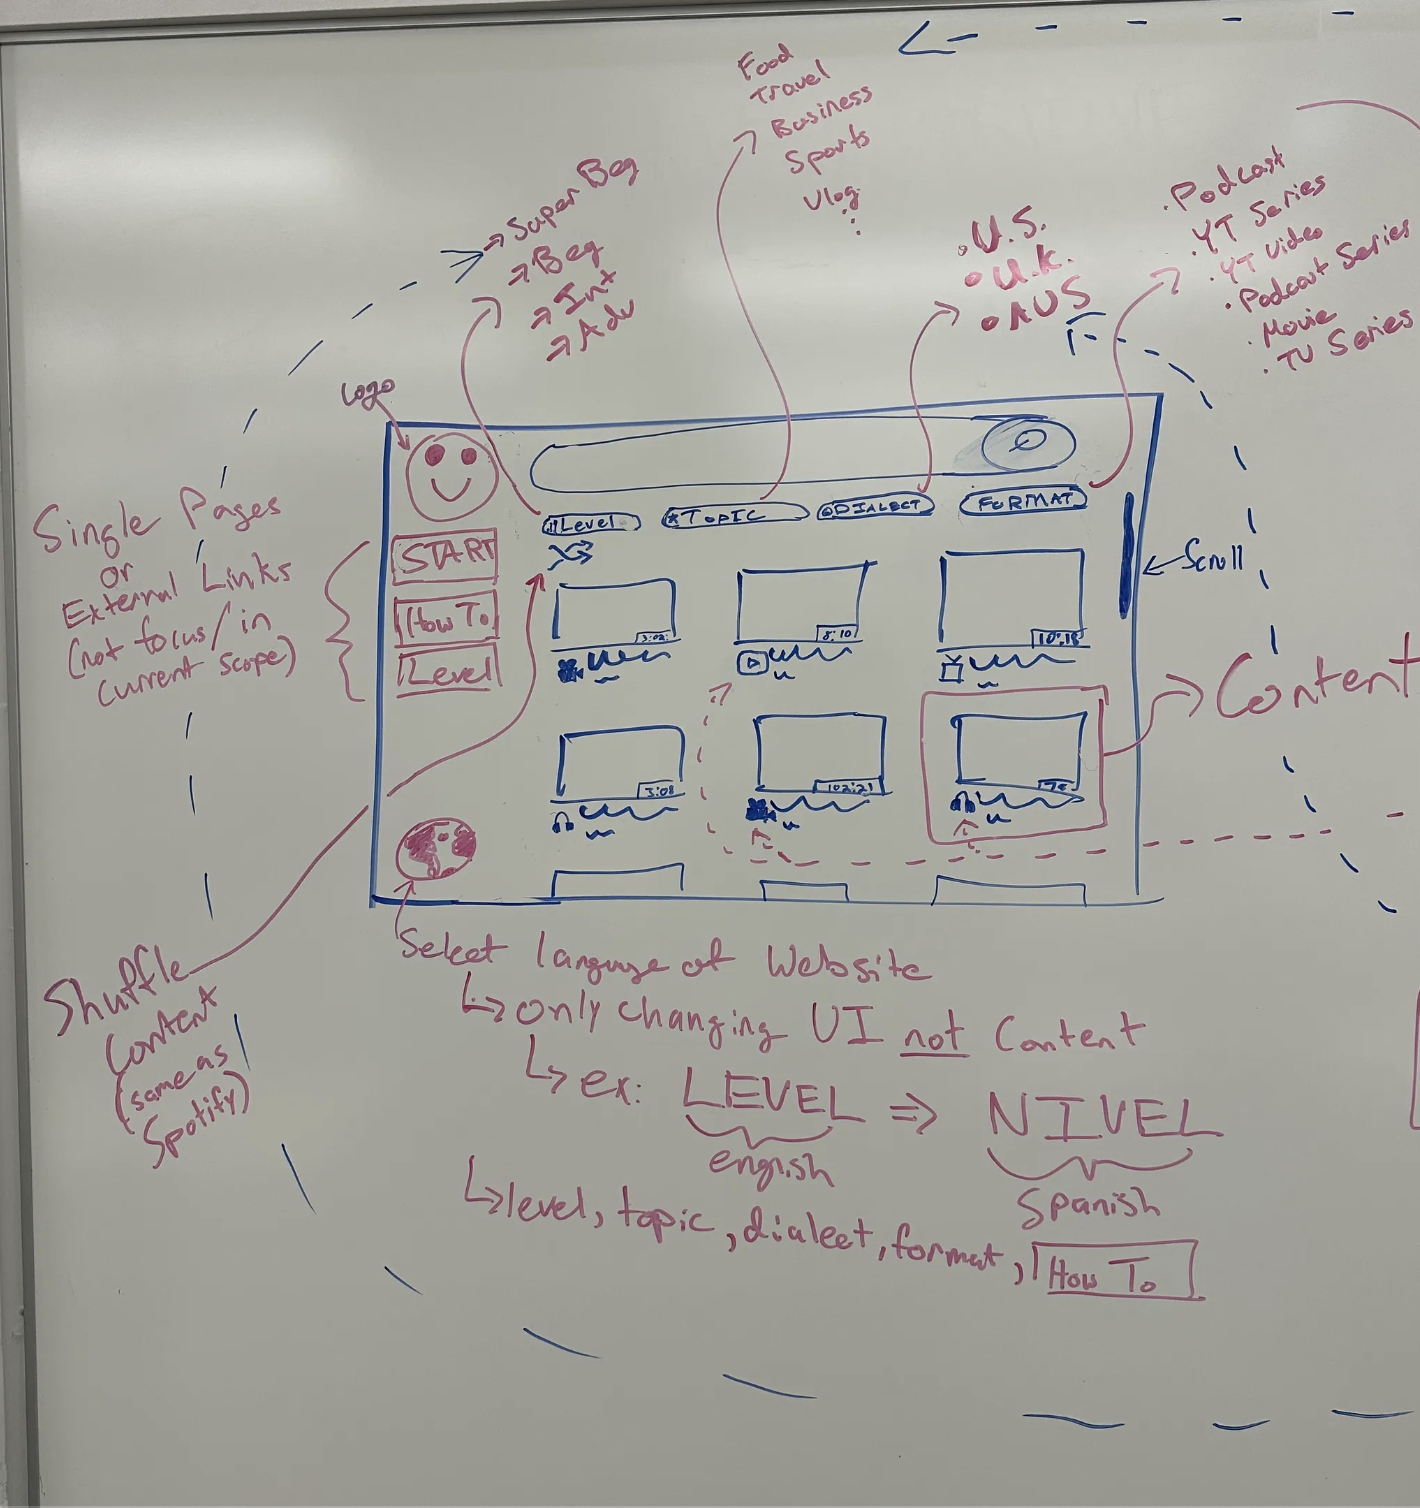 Food
Travel
Business
Sports
Vlog
⋮
→ Super Beg
→ Beg
→ Int
→ Adv
• U.S.
• U.K.
• AUS
• Podcast
• YT Series
• YT Video
• Podcast Series
• Movie
• TV Series
Logo
Single Pages
or
External Links
(not focus/in
current scope)
START
How To
Level
Level
TOPIC
DIALECT
FORMAT
Scroll
3:02
8:10
10:18
3:08
102:21
Content
Shuffle
Content
(same as
Spotify)
Select language of Website
↳ only changing UI not Content
↳ ex: LEVEL ⇒ NIVEL
engish
Spanish
↳ level, topic, dialect, format, How To